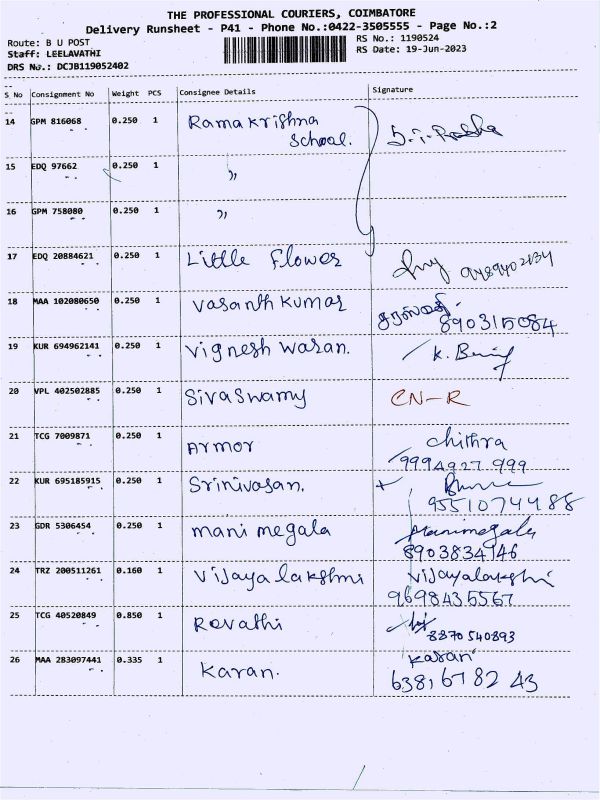 THE PROFESSIONAL COURIERS, COIMBATORE
Delivery Runsheet - P41 - Phone No.:0422-3505555 - Page No.:2
Route: B U POST
RS No.: 1190524
Staff: LEELAVATHI
RS Date: 19-Jun-2023
DRS No.: DCJB119052402
S No Consignment No Weight PCS Consignee Details Signature
14 GPM 816068 0.250 1 Ramakrishna
School.
15 EDQ 97662 0.250 1 ”
16 GPM 758080 0.250 1 ”
17 EDQ 20884621 0.250 1 Little Flower
18 MAA 102080650 0.250 1 Vasanth Kumar
890315084
19 KUR 694962141 0.250 1 Vignesh Waran.
20 VPL 402502885 0.250 1 Sivaswamy CN-R
21 TCG 7009871 0.250 1 Armor chithra
9994927 999
22 KUR 695185915 0.250 1 Srinivasan.
9551074488
23 GDR 5306454 0.250 1 mani megala Manimegala
8903834146
24 TRZ 200511261 0.160 1 Vijayalakshmi Vijayalakshi
9698435567
25 TCG 40520849 0.850 1 Revathi
8870540893
26 MAA 283097441 0.335 1 Karan. Karan
6381678243